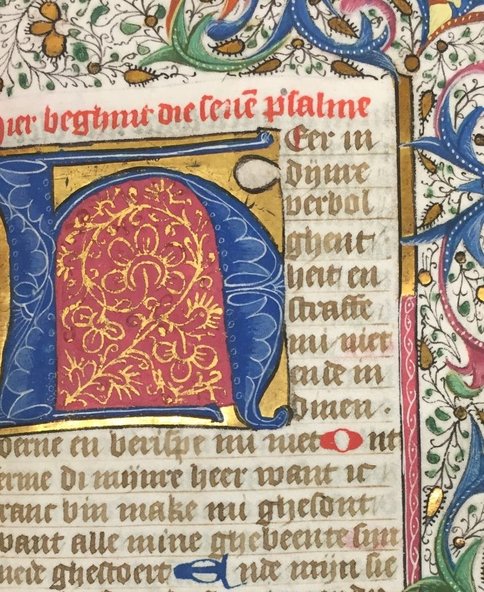 hier beghint die seuē psalme
HEer in
dijnre
vervol
ghent
heit en
straffe
mi niet
ende in
dinen .
verne en berispe mi niet Ont
erme di mijnre heer want ic
cranc bin make mi ghesont
want alle mine ghebeente sijn
ghestoert Ende mijn sie